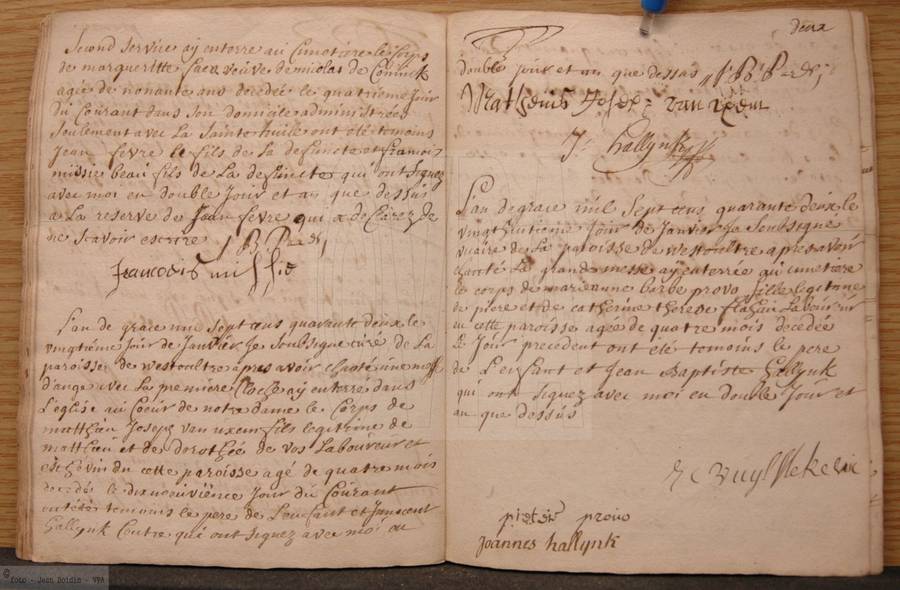 Second Service ay enterre au Cimetiere le Corps
de margueritte Caen veuve de nicolas de Coninck
agée de nonante ans decedée le quatrieme Jour
du Courant dans son domicile administrée
Seulement avec La Sainte huile ont été temoins
Jean fevre le fils de La defuncte et francois
missie beau fils de La defuncte qui ont Signez
avec moi en double Jour et an que dessus
a La reserve de Jean fevre qui a declarez de
ne Scavoir escrire
francois missie
L'an de grace mil Sept cens quarante deux le
vingtieme Jour de Janvier Je Soubsigné curé de La
paroisse de westoultre apres avoir chanté une messe
d'ange avec La premiere Cloche ay enterré dans
L'eglise au Coeur de notre dame le Corps de
matthieu Joseph van uxem fils legitime de
matthieu et de dorothée de vos Laboureur et
eschevin du cette paroisse agé de quatre mois
decedé le dixneuvieme Jour du Courant
ont été temoins le pere de L'enfant et Innocent
hallynk Coutre qui ont Signez avec moi en
deux
double Jour et an que dessus
Matheuis Josep van uxem
J: hallynk
L'an de grace mil Sept cens quarante deux le
vingthuitieme Jour de Janvier Je Soubsigné
vicaire de La paroisse de westoultre apres avoir
chanté La grande messe ay enterrée au cimetiere
le corps de marieanne barbe provo fille legitime
de piere et de catherine therese flahau Laboureur
en cette paroisse agee de quatre mois decedée
le Jour precedent ont été temoins le pere
de L'enfant et Jean Baptiste hallynk
qui ont Signez avec moi en double Jour et
an que dessus
pieter provo
Joannes hallynk
© foto - Jean Boidin - VPA